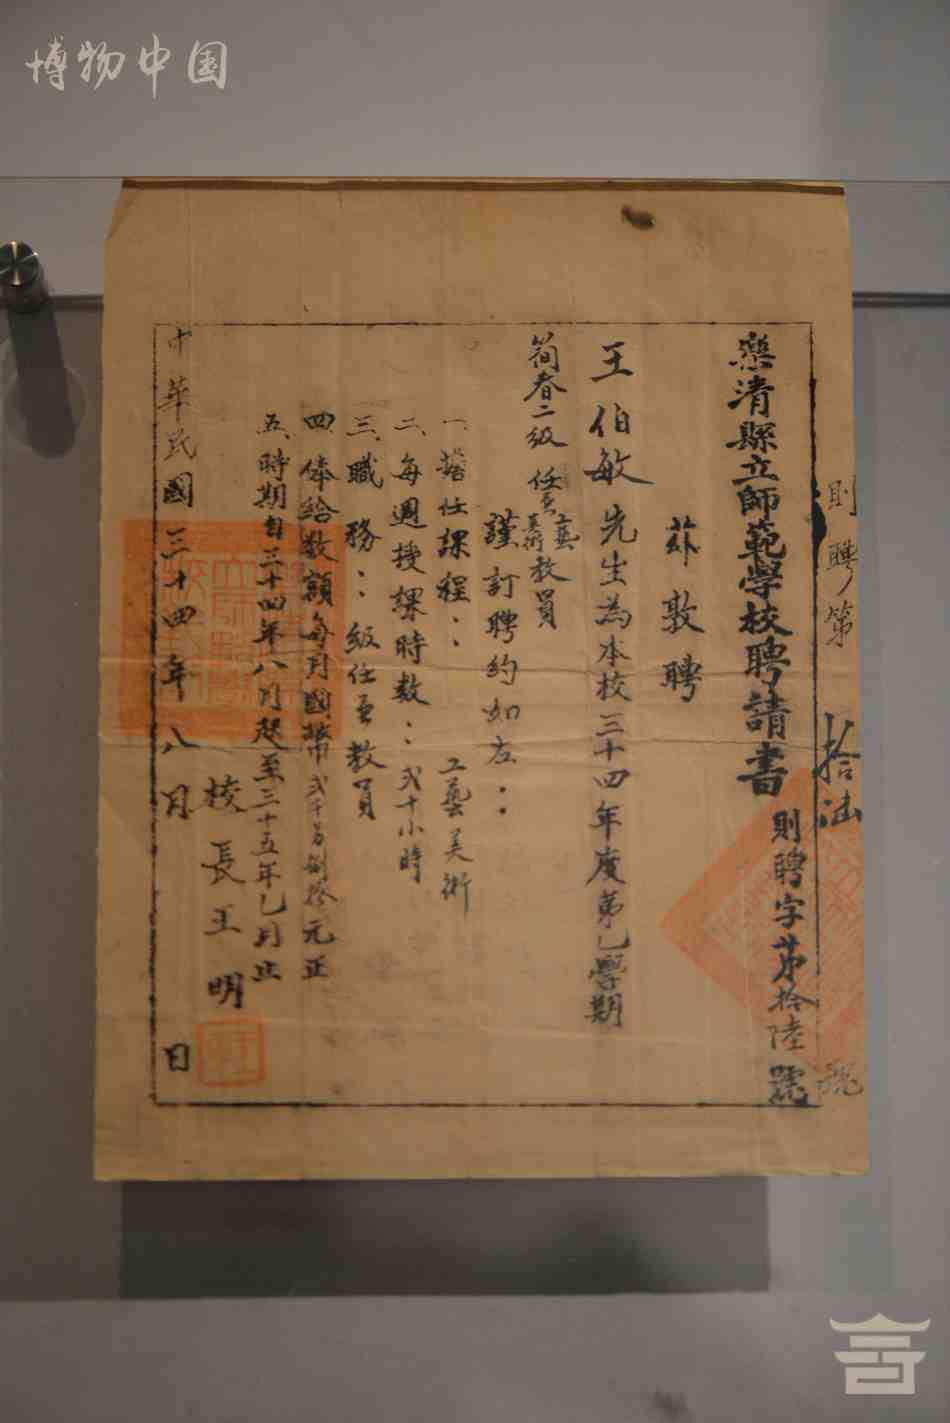 博物中国
則聘第拾陆號
樂清縣立師範學校聘請書
則聘字第拾陸號
茲敦聘
王伯敏先生為本校三十四年度第乙學期
簡春二級任及工藝美術教員
謹訂聘約如左：
一、擔任課程：工藝美術
二、每週授課時数：弍十小時
三、職務：級任及教員
四、俸給数額每月國幣弍千另捌拾元正
五、時期自三十四年八月起至三十五年乙月止
校長王明
中華民國三十四年八月日